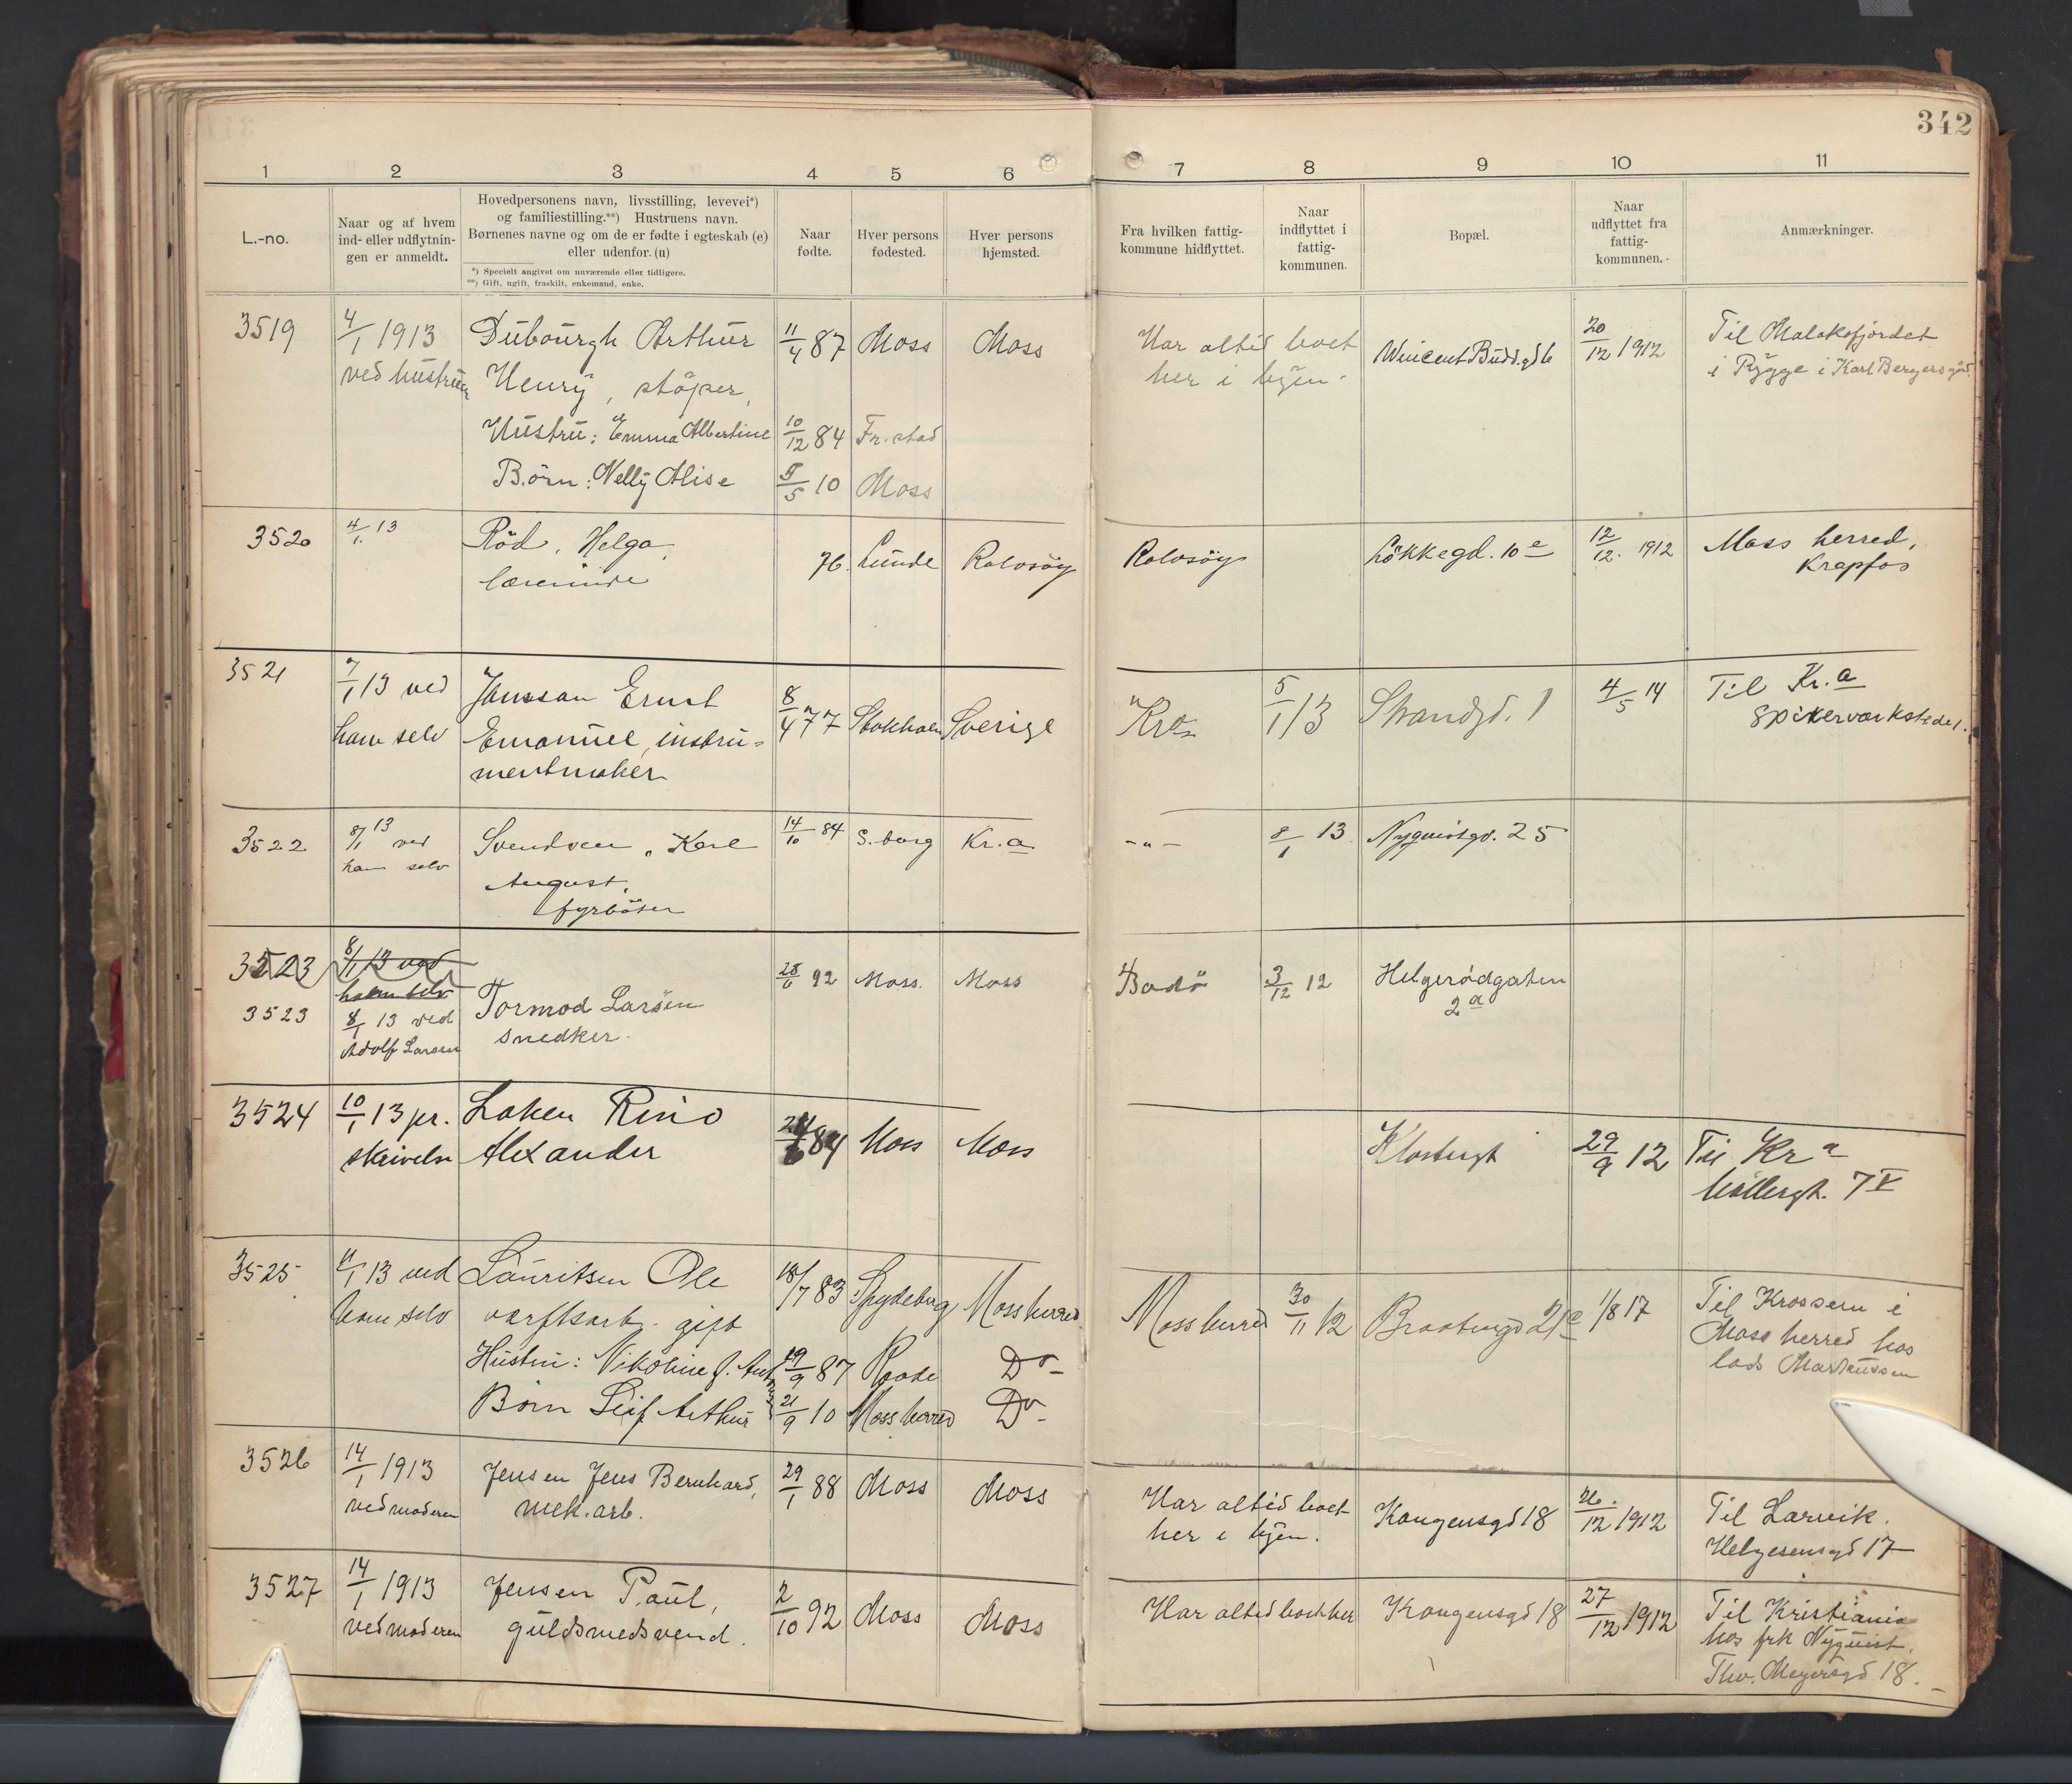 342
1 2 3 4 5 6 7 8 9 10 11
L.-no.
Naar og af hvem
ind- eller udflytnin-
gen er anmeldt.
Hovedpersonens navn, livsstilling, levevei*)
og familiestilling.**) Hustruens navn.
Børnenes navne og om de er fødte i egteskab (e)
eller udenfor. (u)
*) Specielt angivet om nuværende eller tidligere.
**) Gift, ugift, fraskilt, enkemand, enke.
Naar
fødte.
Hver persons
fødested.
Hver persons
hjemsted.
Fra hvilken fattig-
kommune hidflyttet.
Naar
indflyttet i
fattig-
kommunen.
Bopæl.
Naar
udflyttet fra
fattig-
kommunen.
Anmærkninger.
3519
4/1 1913
ved hustruen
Dubourgh Arthur
Henry, støper,
Hustru: Emma Albertine
Børn: Nelly Alise
11/4 87
10/12 84
5/5 10
Moss
Fr.stad
Moss
Moss
Har altid boet
her i byen.
Wincent Budd.gd 6
20/12 1912
Til Malakofjordet
i Rygge i Karl Bergersgård.
3520
4/1 13
Röd, Helga,
lærerinde
76.
Lunde
Rolvsöy
Rolvsöy
Løkkegd. 10 e
12/12. 1912
Moss herred,
Krapfos
3521
7/1 13 ved
ham selv
Jansson Ernst
Emanuel, instru-
mentmaker
8/4 77
Stokholm
Sverige
Kra
5/1 13
Strandgd. 1
4/5 14
Til Kr.a
Spikerverkstedet.
3522
8/1 13 ved
ham selv
Svendsen, Karl
August,
fyrböter
14/10 84
S.borg
Kr.a
-"-
8/1 13
Nyquistgd. 25
3523
8/1 13 ved
ham selv
3523
8/1 13 ved
Adolf Larsen
Tormod Larsen
snedker.
25/6 92
Moss.
Moss
Bodö
3/12 12
Helgerødgaten
2 a
3524
10/1 13 pr.
skrivelse
Loken Rino
Alexander
84
Moss
Moss
Klostergt
29/9 12
Til Kr a
Møllergt. 7 V
3525
11/1 13 ved
ham selv
Lauritsen Ole
værftsarb. gift
Hustru: Nikoline f.
Børn Leif Arthur
18/7 83
19/9 87
21/9 10
Spydeberg
Raade
Moss herred
Moss herred
Do -
Do -
Moss herred
30/11 12
Braatengd 21 e
1/8 17
Til Krossern i
Moss herred hos
lods Martinssen
3526
14/1 1913
ved moderen
Jensen Jens Bernhard,
mek. arb.
29/1 88
Moss
Moss
Har altid boet
her i byen.
Kongensgd 18
26./12 1912
Til Larvik.
Helgesensgd 17
3527
14/1 1913
ved moderen
Jensen Paul,
guldsmedsvend.
2/10 92
Moss
Moss
Har altid boet her
Kongensgd 18
27/12 1912
Til Kristiania
hos frk Nyquist,
Thv. Meyersgd 18. -